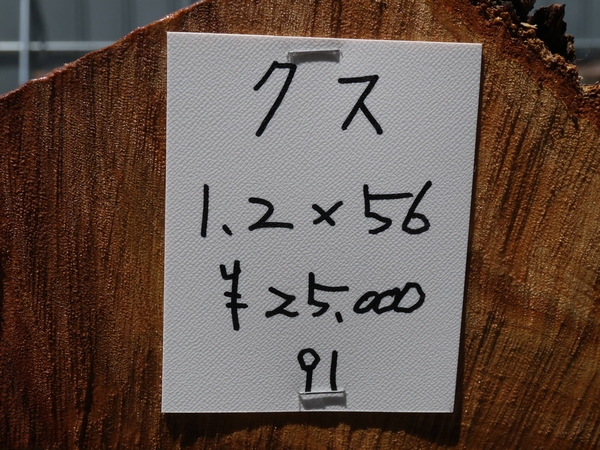 クス
1.2×56
¥25,000
91